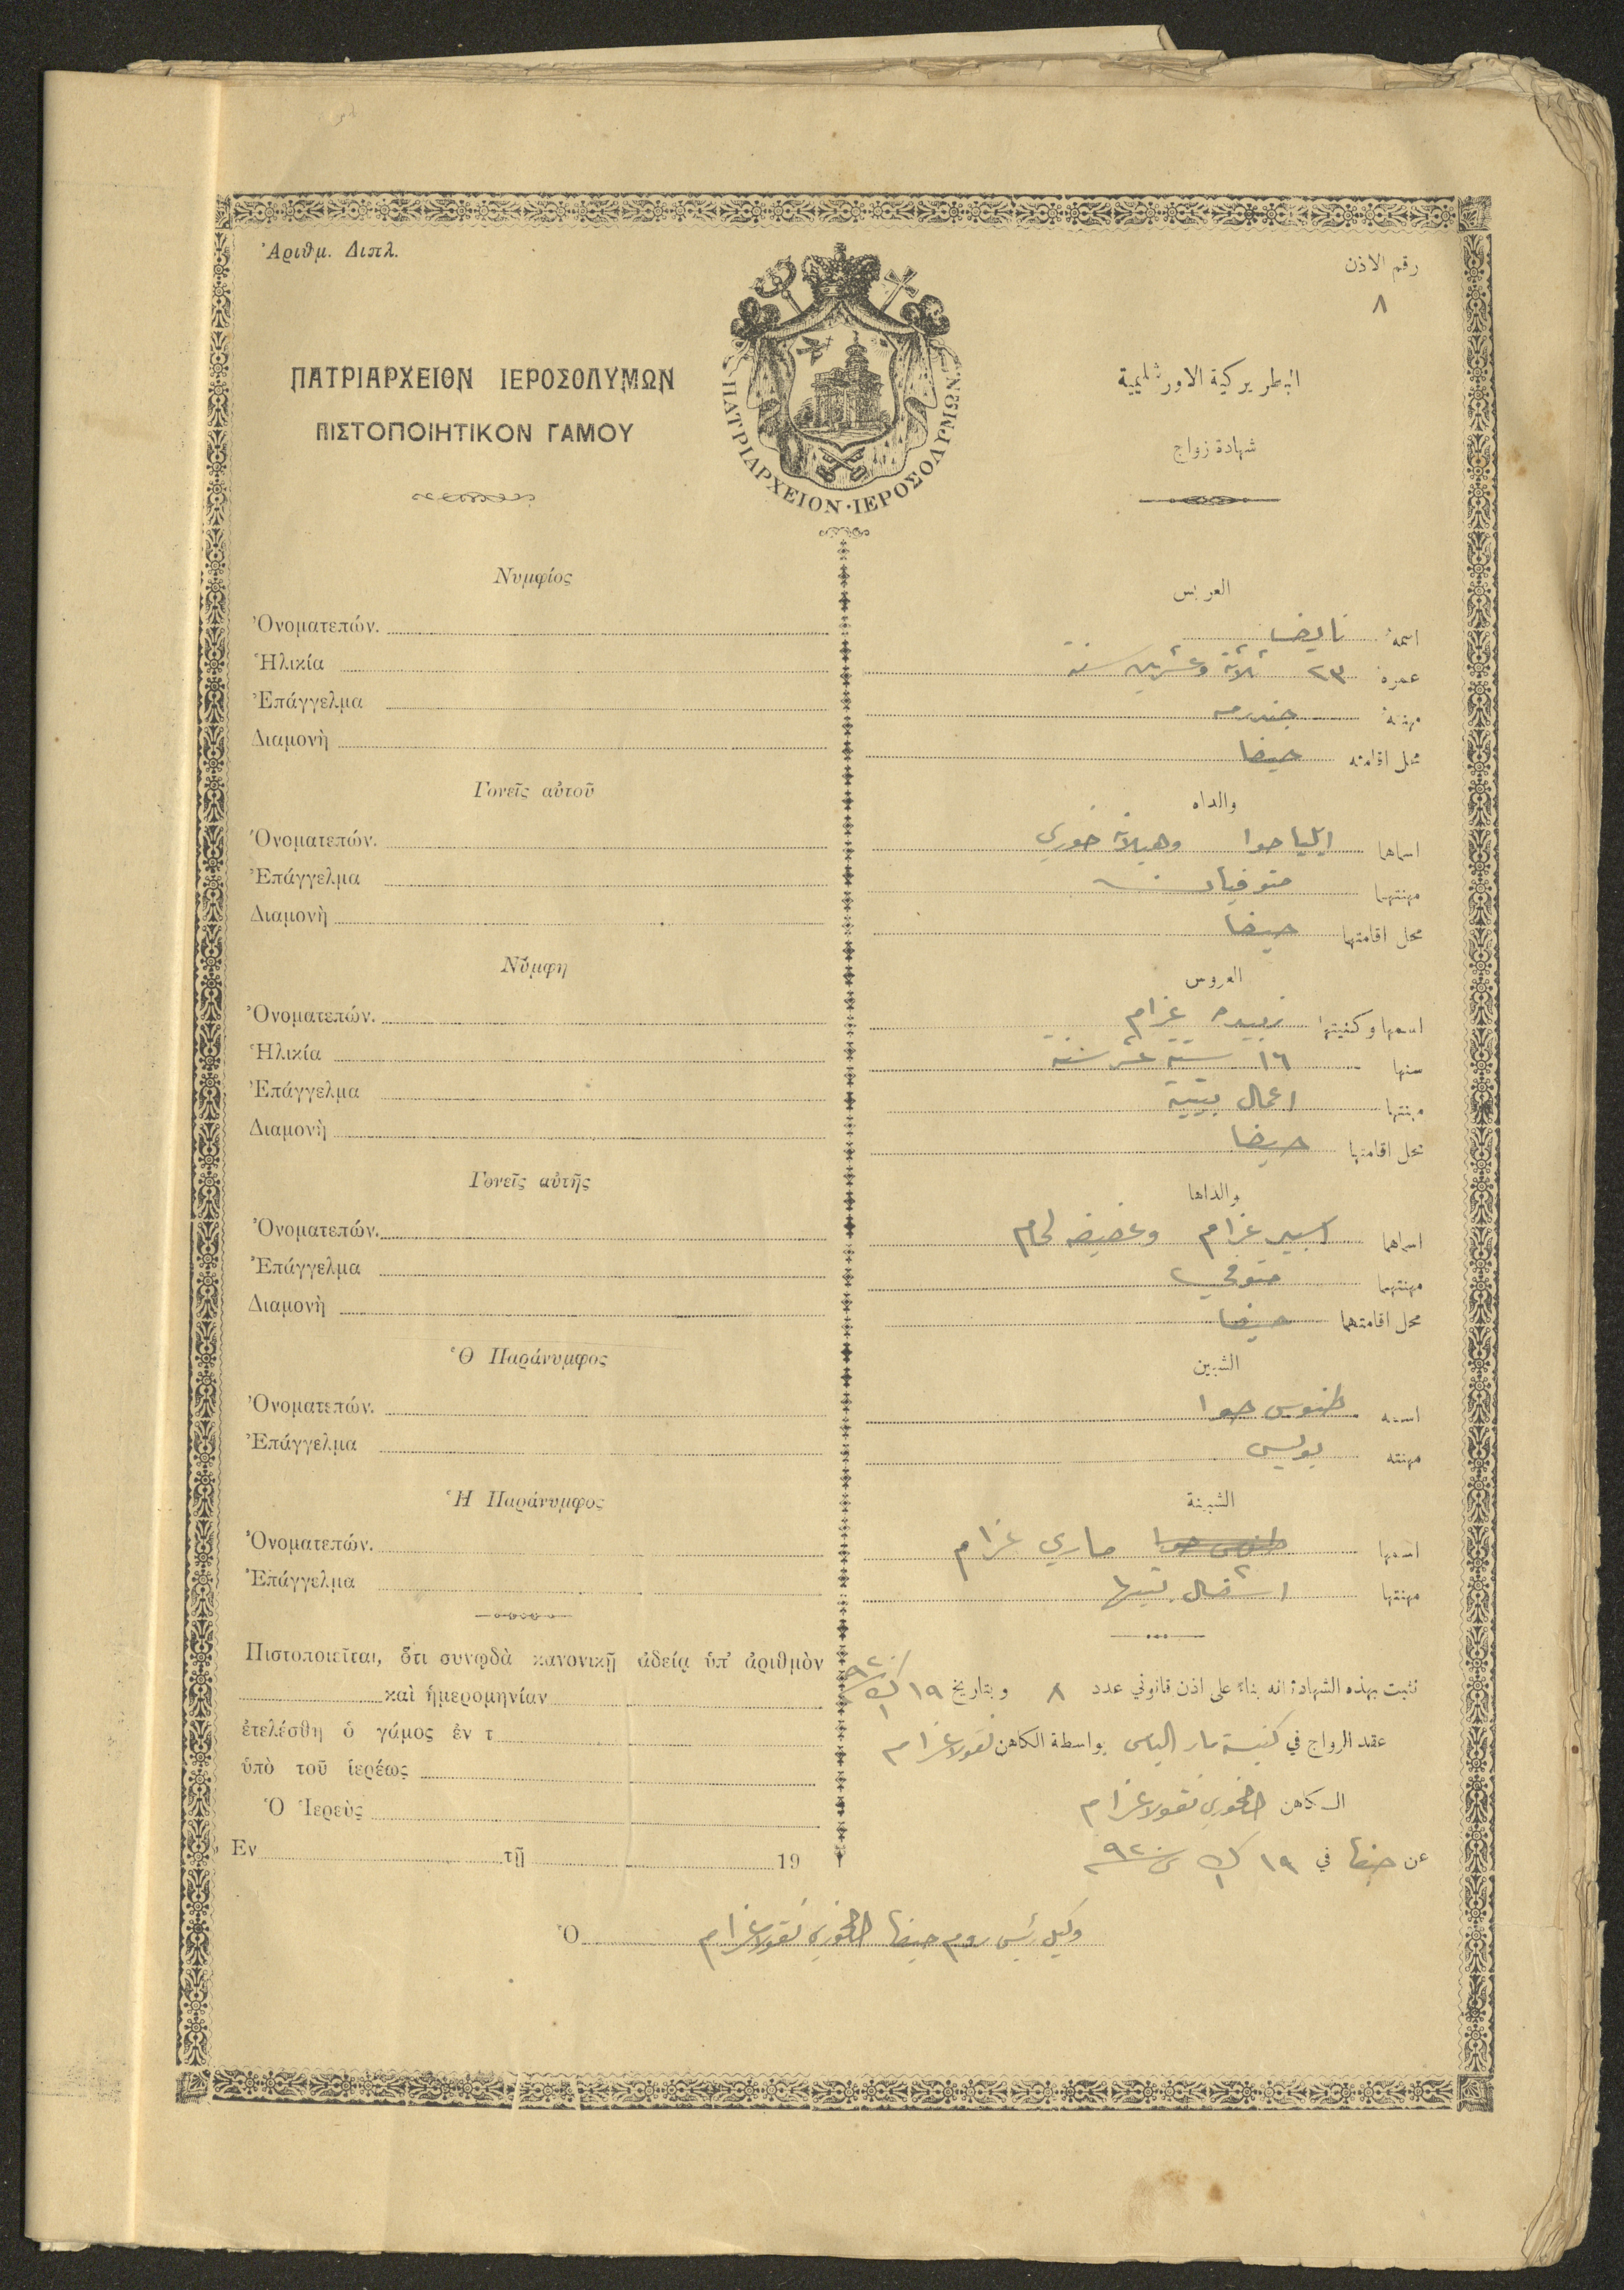 Ἀριθμ. Διπλ.
رقم الاذن
٨
ΠΑΤΡΙΑΡΧΕΙΟΝ ΙΕΡΟΣΟΛΥΜΩΝ
ΠΙΣΤΟΠΟΙΗΤΙΚΟΝ ΓΑΜΟΥ
ΠΑΤΡΙΑΡΧΕΙΟΝ·ΙΕΡΟΣΟΛΥΜΩΝ
البطريركية الاورشليمية
شهادة زواج
Νυμφίος
Ὀνοματεπών.
Ἡλικία
Ἐπάγγελμα
Διαμονὴ
Γονεῖς αὐτοῦ
Ὀνοματεπών.
Ἐπάγγελμα
Διαμονὴ
Νύμφη
Ὀνοματεπών.
Ἡλικία
Ἐπάγγελμα
Διαμονὴ
Γονεῖς αὐτῆς
Ὀνοματεπών.
Ἐπάγγελμα
Διαμονὴ
Ὁ Παράνυμφος
Ὀνοματεπών.
Ἐπάγγελμα
Ἡ Παράνυμφος
Ὀνοματεπών.
Ἐπάγγελμα
Πιστοποιεῖται, ὅτι συνῳδὰ κανονικῇ ἀδείᾳ ὑπ' ἀριθμὸν
καὶ ἡμερομηνίαν
ἐτελέσθη ὁ γάμος ἐν τ
ὑπὸ τοῦ ἱερέως
Ὁ Ἱερεὺς
Ἐν τῇ 19
العريس
اسمه نايف
عمره ٢٣ ثلاثة وعشرين سنة
مهنته جندرمه
محل اقامته حيفا
والداه
اسماهما ايليا حوا وهيلانه خوري
مهنتهما متوفيان
محل اقامتهما حيفا
العروس
اسمها وكنيتها زبيده عزام
سنها ١٦ ستة عشر سنة
مهنتها اعمال بيتية
محل اقامتها حيفا
والداها
اسماهما اسبير عزام وعفيفه لحام
مهنتهما متوفي
محل اقامتهما حيفا
الشبين
اسمه طنوس حوا
مهنته بوليس
الشبينة
اسمها طنوس حوا ماري عزام
مهنتها اشغال بيتها
نثبت بهذه الشهادة انه بناءً على اذن قانوني عدد ٨ وبتاريخ ١٩ ك١ ٩٢٠
عقد الزواج في كنيسة مار الياس بواسطة الكاهن نقولا عزام
الكاهن الخوري نقولا عزام
عن حيفا في ١٩ ك١ سنة ٩٢٠
Ὁ وكيل رئيس روم حيفا الخوري نقولا عزام